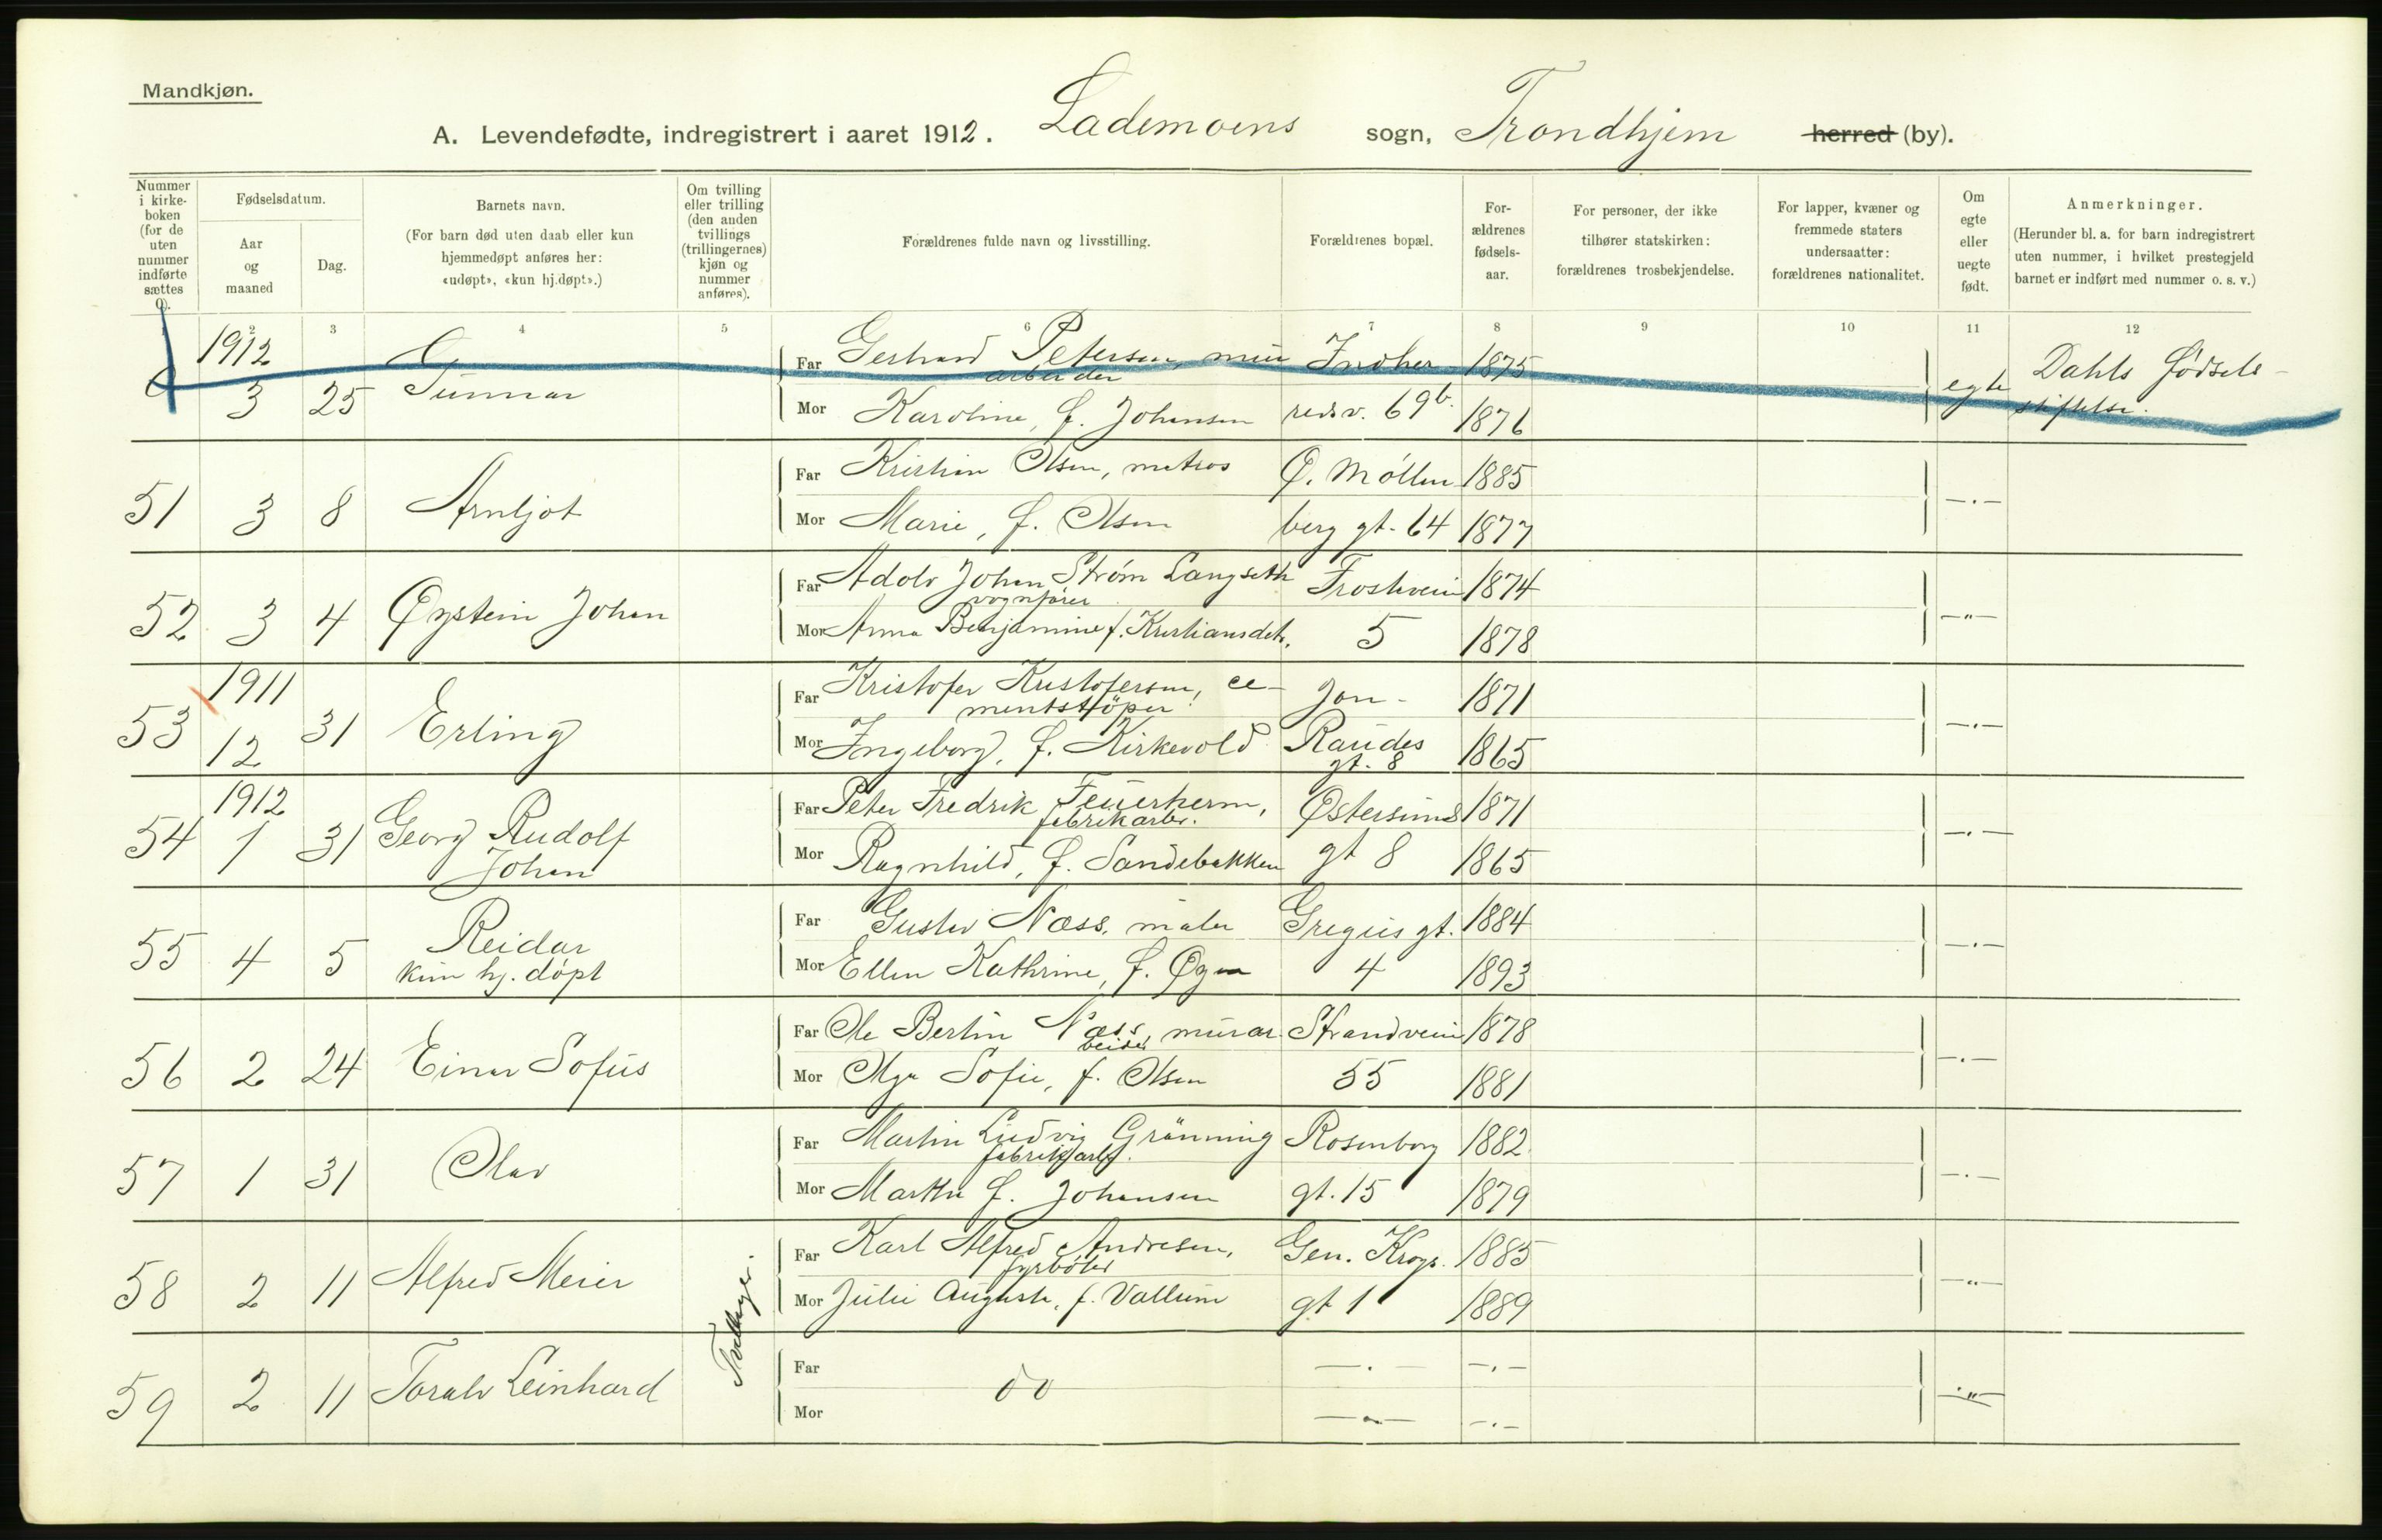 Mandkjøn.
A. Levendefødte, indregistrert i aaret 1912. Lademoens sogn, Trondhjem herred (by).
Nummer i kirke-boken (for de uten nummer indførte sættes 0).
Fødselsdatum.
Aar og maaned
Dag.
Barnets navn.
(For barn død uten daab eller kun hjemmedøpt anføres her: «udøpt», «kun hj.døpt».)
Om tvilling eller trilling (den anden tvillings (trillingernes) kjøn og nummer anføres).
Forældrenes fulde navn og livsstilling.
Forældrenes bopæl.
For-ældrenes fødsels-aar.
For personer, der ikke tilhører statskirken: forældrenes trosbekjendelse.
For lapper, kvæner og fremmede staters undersaatter: forældrenes nationalitet.
Om egte eller uegte født.
Anmerkninger.
(Herunder bl. a. for barn indregistrert uten nummer, i hvilket prestegjeld barnet er indført med nummer o. s. v.)
2 3 4 5 6 7 8 9 10 11 12
1912
0 3 25 Gunnar
Far Gerhard Petersen, mur Indher 1875
arbeider
Mor Karoline, f. Johansen redsv. 69b. 1876
egte Dahls fødsels-
stiftelse.
51 3 8 Arnljot
Far Kristian Olsen, matros Ø. Møllen 1885
Mor Marie, f. Olsen berg gt. 64 1877
—·—
52 3 4 Øystein Johan
Far Adolv Johan Strøm Langseth Frostavein 1874
vognfører
Mor Anna Benjamine f. Kristiansdtr. 5 1878
—"—
1911
53 12 31 Erling
Far Kristofer Kristofersen, ce- Jon- 1871
mentstøper
Mor Ingeborg, f. Kirkevold Raudes 1865
gt. 8
—·—
1912
54 1 31 Georg Rudolf
Johan
Far Peter Fredrik Feuerherm, Østersunds 1871
fabrikarb.
Mor Ragnhild, f. Sandebakken gt 8 1865
—·—
55 4 5 Reidar
kun hj. døpt
Far Gustav Næss, maler Gregus gt. 1884
Mor Ellen Kathrine, f. Øyen 4 1893
—·—
56 2 24 Einar Sofus
Far Ole Bertin Næss, murar Strandvein 1878
beider
Mor Olga Sofie, f. Olsen 55 1881
—·—
57 1 31 Olav
Far Martin Ludvig Grönning Rosenborg 1882
fabrikarb.
Mor Martha f. Johansen gt. 15 1879
—·—
58 2 11 Alfred Meier
Tvillinger.
Far Karl Alfred Andresen, Gen. Krogs. 1885
fyrbøter
Mor Julie Augusta, f. Vallum gt 1 1889
—"—
59 2 11 Toralv Leinhard
Far do —·— —·—
Mor —"— —·—
—"—